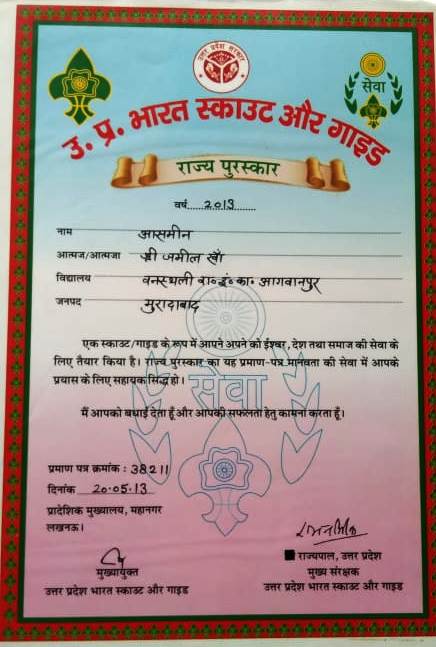 उत्तर प्रदेश सरकार
सेवा
उ. प्र. भारत स्काउट और गाइड
राज्य पुरस्कार
वर्ष 2013
नाम आसमीन
आत्मज/आत्मजा श्री जमील खाँ
विद्यालय वनस्थली बा०इं०का० आगवानपुर
जनपद मुरादाबाद
एक स्काउट/गाइड के रूप में आपने अपने को ईश्वर, देश तथा समाज की सेवा के
लिए तैयार किया है। राज्य पुरस्कार का यह प्रमाण-पत्र मानवता की सेवा में आपके
प्रयास के लिए सहायक सिद्ध हो।
सेवा
मैं आपको बधाई देता हूँ और आपकी सफलता हेतु कामना करता हूँ।
प्रमाण पत्र क्रमांक : 38211
दिनांक 20-05-13
प्रादेशिक मुख्यालय, महानगर
लखनऊ।
मुख्यायुक्त
उत्तर प्रदेश भारत स्काउट और गाइड
राज्यपाल, उत्तर प्रदेश
मुख्य संरक्षक
उत्तर प्रदेश भारत स्काउट और गाइड